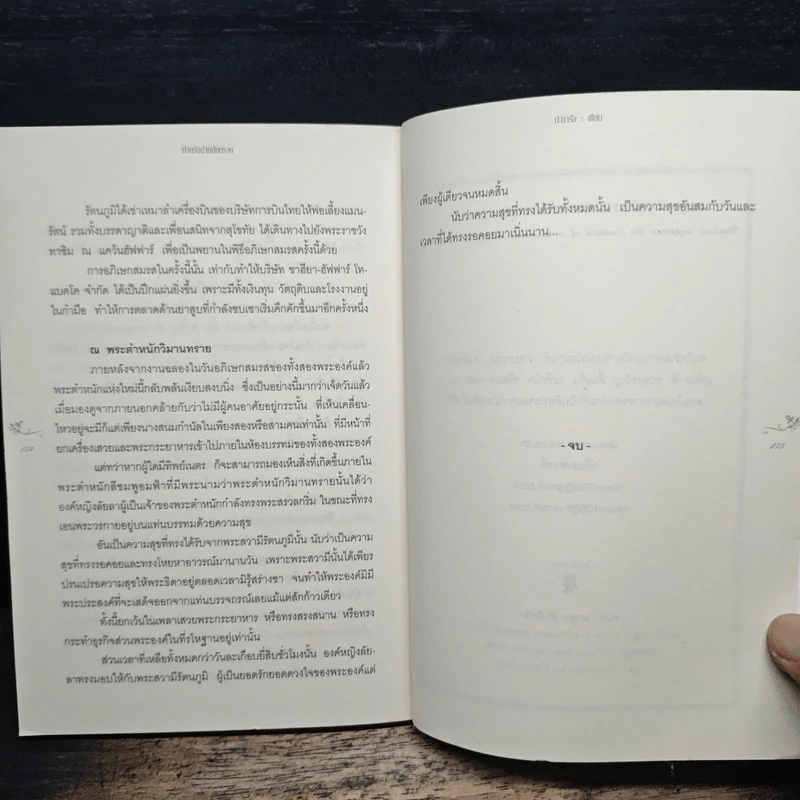 รัตนภูมิได้เช่าเหมาลำเครื่องบินของบริษัทการบินไทยให้พ่อเลี้ยงแมน-
รัตน์ รวมทั้งบรรดาญาติและเพื่อนสนิทจากสุโขทัย ได้เดินทางไปยังพระราชวัง
ทาชิม ณ แคว้นฮัฟฟาร์ เพื่อเป็นพยานในพิธีอภิเษกสมรสครั้งนี้ด้วย
การอภิเษกสมรสในครั้งนี้นั้น เท่ากับทำให้บริษัท ชาฮียา-ฮัฟฟาร์ โท-
แบคโค จำกัด ได้เป็นปึกแผ่นยิ่งขึ้น เพราะมีทั้งเงินทุน วัตถุดิบและโรงงานอยู่
ในกำมือ ทำให้การตลาดด้านยาสูบที่กำลังซบเซาเริ่มคึกคักขึ้นมาอีกครั้งหนึ่ง
ณ พระตำหนักวิมานทราย
ภายหลังจากงานฉลองในวันอภิเษกสมรสของทั้งสองพระองค์แล้ว
พระตำหนักแห่งใหม่นี้กลับพลันเงียบสงบนิ่ง ซึ่งเป็นอย่างนี้มากว่าเจ็ดวันแล้ว
เมื่อมองดูจากภายนอกคล้ายกับว่าไม่มีผู้คนอาศัยอยู่กระนั้น ที่เห็นเคลื่อน-
ไหวอยู่จะมีก็แต่เพียงนางสนมกำนัลในเพียงสองหรือสามคนเท่านั้น ที่มีหน้าที่
ยกเครื่องเสวยและพระกระยาหารเข้าไปภายในห้องบรรทมของทั้งสองพระองค์
แต่ทว่าหากผู้ใดมีทิพย์เนตร ก็จะสามารถมองเห็นสิ่งที่เกิดขึ้นภายใน
พระตำหนักสีชมพูอมฟ้าที่มีพระนามว่าพระตำหนักวิมานทรายนั้นได้ว่า
องค์หญิงลัยลาผู้เป็นเจ้าของพระตำหนักกำลังทรงพระสรวลกริ่ม ในขณะที่ทรง
เอนพระวรกายอยู่บนแท่นบรรทมด้วยความสุข
อันเป็นความสุขที่ทรงได้รับจากพระสวามีรัตนภูมินั้น นับว่าเป็นความ
สุขที่ทรงรอคอยและทรงโหยหาอาวรณ์มานานวัน เพราะพระสวามีนั้นได้เพียร
ปรนเปรอความสุขให้พระธิดาอยู่ตลอดเวลามิรู้สร่างซา จนทำให้พระองค์มิมี
พระประสงค์ที่จะเสด็จออกจากแท่นบรรจถรณ์เลยแม้แต่สักก้าวเดียว
ทั้งนี้ยกเว้นในเพลาเสวยพระกระยาหาร หรือทรงสรงสนาน หรือทรง
กระทำธุรกิจส่วนพระองค์ในที่รโหฐานอยู่เท่านั้น
ส่วนเวลาที่เหลือทั้งหมดกว่าวันละเกือบยี่สิบชั่วโมงนั้น องค์หญิงลัย-
ลาทรงมอบให้กับพระสวามีรัตนภูมิ ผู้เป็นยอดรักยอดดวงใจของพระองค์แต่
: เขียน
เพียงผู้เดียวจนหมดสิ้น
นับว่าความสุขที่ทรงได้รับทั้งหมดนั้น เป็นความสุขอันสมกับวันและ
เวลาที่ได้ทรงรอคอยมาเนิ่นนาน...
- จบ -